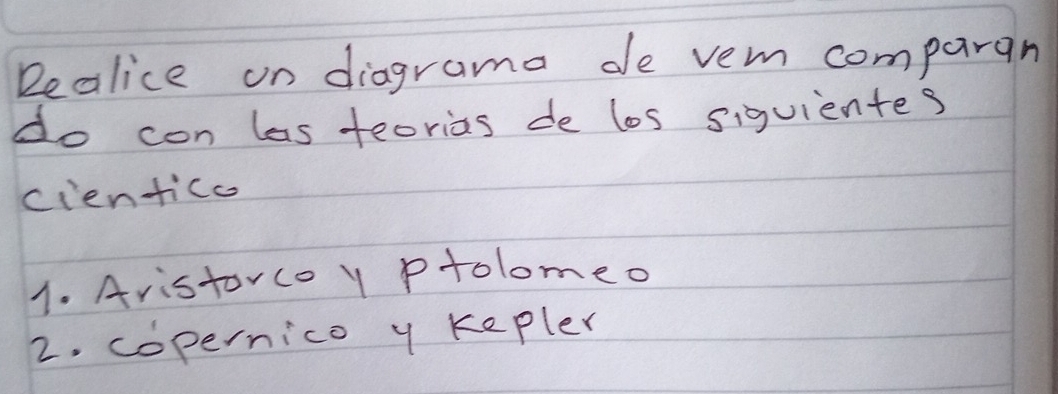 Realice un diagrama de vem comparan
do con las teorias de los siguientes
cientico
1. Aristarco y Ptolomeo
2. Cópernico y Kepler